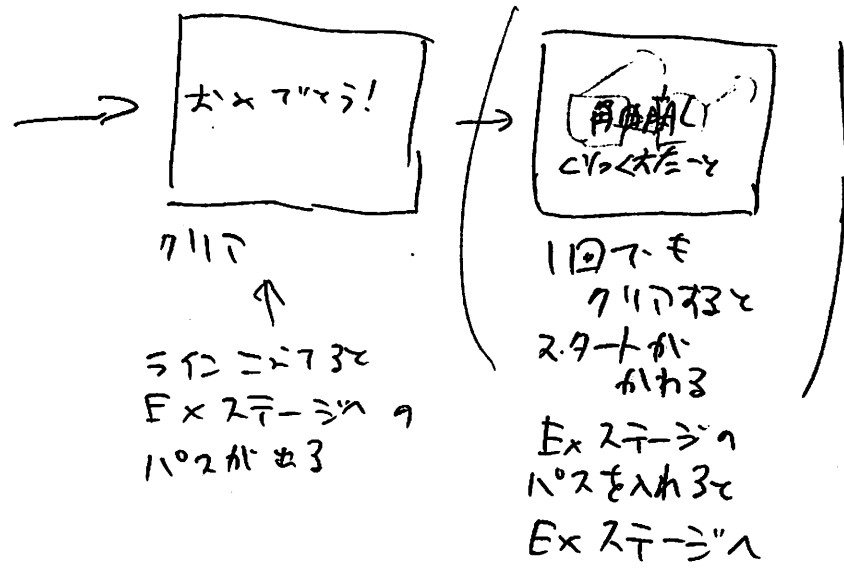 おめでとう!
クリア
ラインこえてると
Exステージへの
パスが出る
くりっく
1回でも
クリアすると
スタートが
かわる
Exステージの
パスを入れると
Exステージへ